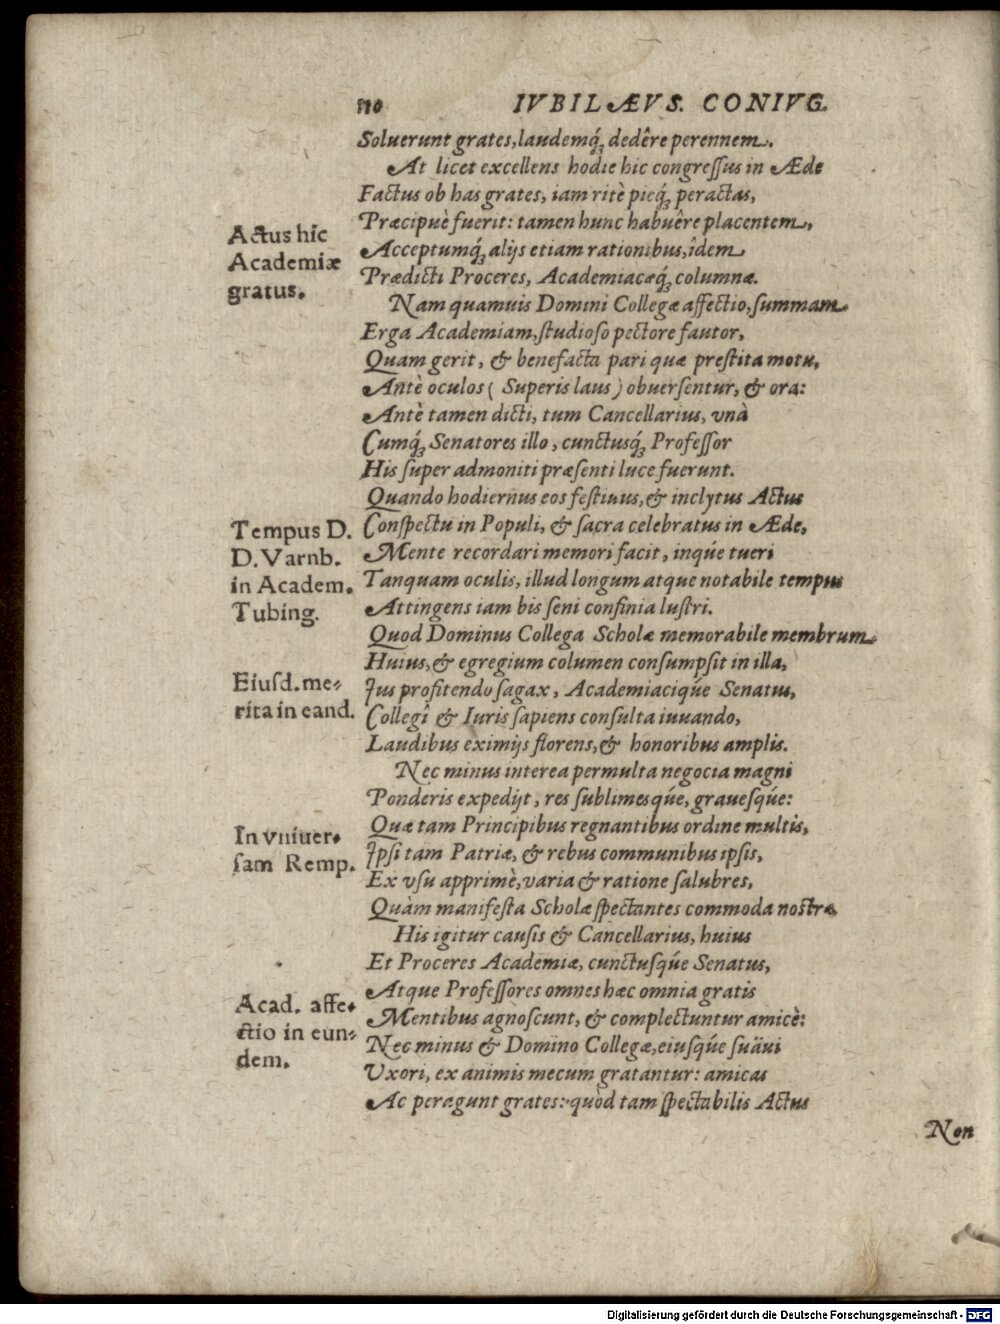 110 IVBILÆVS. CONIVG.
Soluerunt grates, laudemq́ꝫ dedêre perennem.
At licet excellens hodie hic congreſſus in Æde
Factus ob has grates, iam ritè pieq́ꝫ peractas,
Præcipuè fuerit: tamen hunc habuêre placentem,
Acceptumq́ꝫ alijs etiam rationibus, îdem
Prædicti Proceres, Academiacæq́ꝫ columnæ.
Actus hic
Academiæ
gratus.
Nam quamuis Domini Collegæ affectio, ſummam
Erga Academiam, ſtudioſo pectore fautor,
Quam gerit, & benefacta pari quæ preſtita motu,
Antè oculos ( Superis laus ) obuerſentur, & ora:
Antè tamen dicti, tum Cancellarius, vnà
Cumq́ꝫ Senatores illo, cunctusq́ꝫ Profeſſor
His ſuper admoniti præſenti luce fuerunt.
Quando hodiernus eos feſtiuus, & inclytus Actus
Conſpectu in Populi, & ſacra celebratus in Æde,
Mente recordari memori facit, inqúe tueri
Tanquam oculis, illud longum atque notabile tempus
Attingens iam bis ſeni confinia luſtri.
Tempus D.
D. Varnb.
in Academ.
Tubing.
Quod Dominus Collega Scholæ memorabile membrum
Huius, & egregium columen conſumpſit in illa,
Jus profitendo ſagax, Academiaciqúe Senatus,
Collegî & Iuris ſapiens conſulta iuuando,
Laudibus eximijs florens, & honoribus amplis.
Eiuſd. me-
rita in eand.
Nec minus interea permulta negocia magni
Ponderis expedijt, res ſublimesqúe, graueſqúe:
Quæ tam Principibus regnantibus ordine multis,
Ipſi tam Patriæ, & rebus communibus ipſis,
Ex vſu apprimè, varia & ratione ſalubres,
Quàm manifeſta Scholæ ſpectantes commoda nostræ.
In vniuer-
ſam Remp.
His igitur cauſis & Cancellarius, huius
Et Proceres Academiæ, cunctuſqúe Senatus,
Atque Profeſſores omnes hæc omnia gratis
Mentibus agnoſcunt, & complectuntur amicè:
Nec minus & Domino Collegæ, eiuſqúe ſuäui
Vxori, ex animis mecum gratantur: amicas
Ac peragunt grates: quòd tam ſpectabilis Actus
Acad. affe-
ctio in eun-
dem.
Non
Digitalisierung gefördert durch die Deutsche Forschungsgemeinschaft - DFG